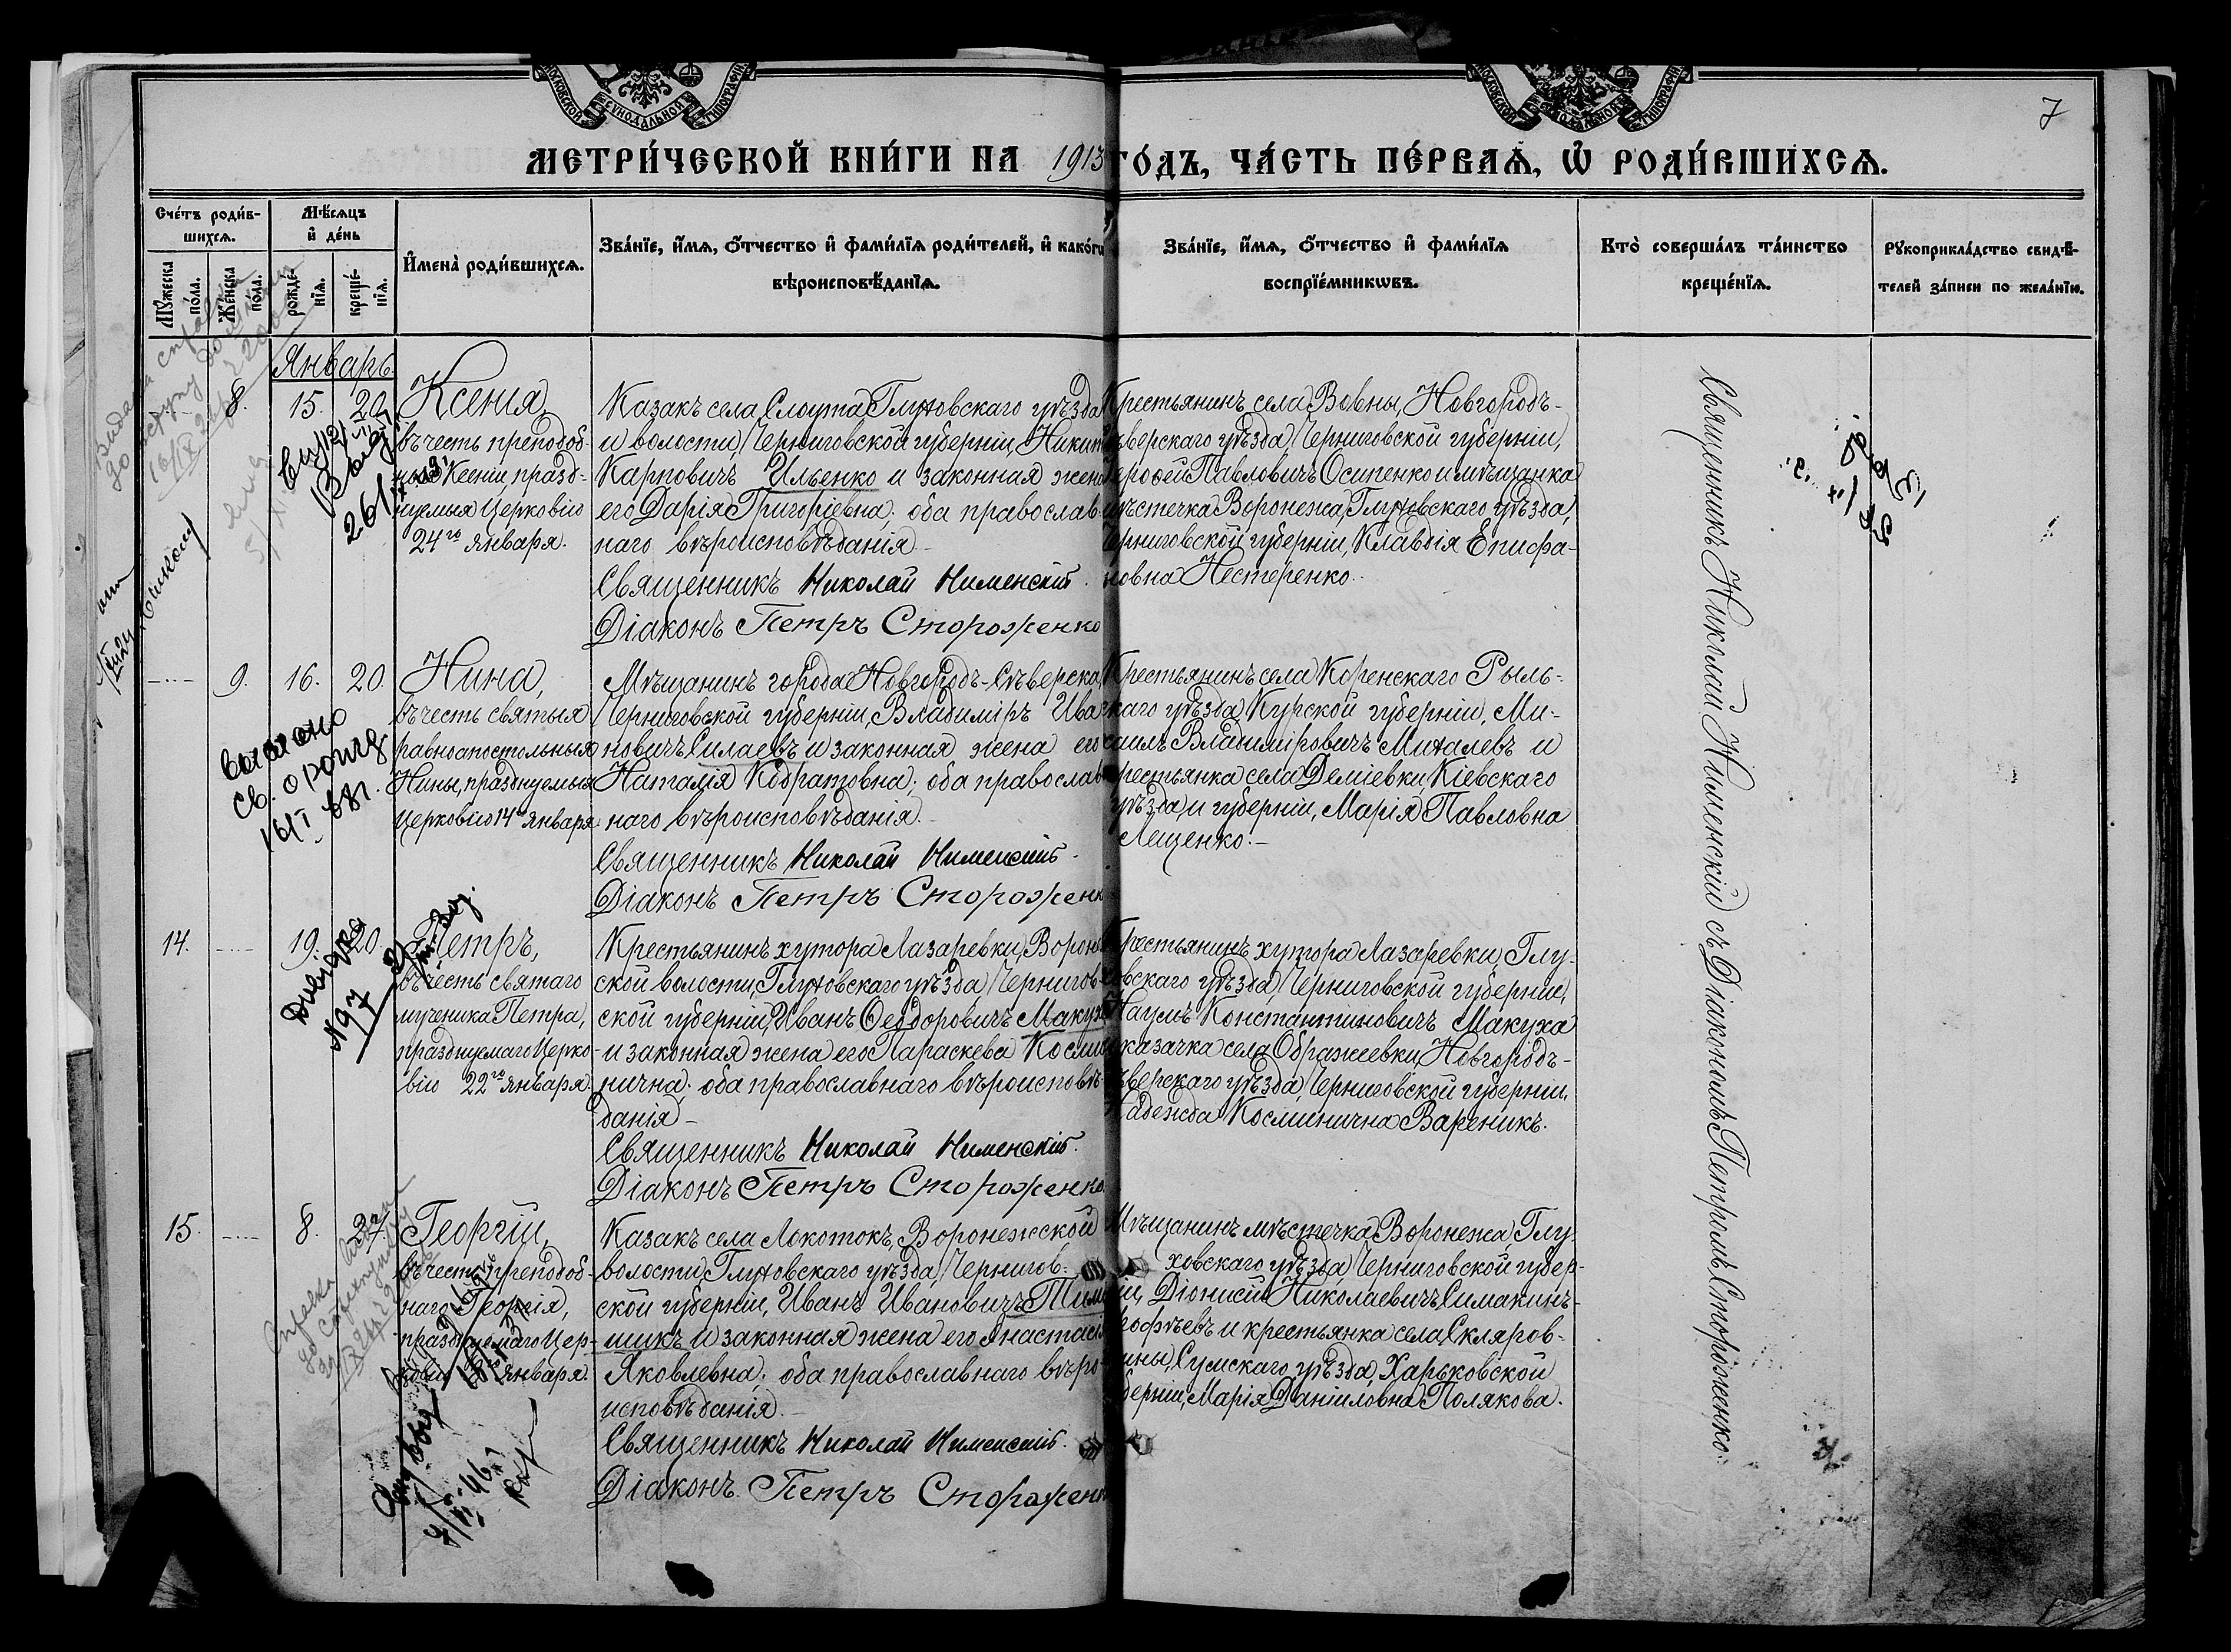 7
МЕТРИ́ЧЕСКОЙ КНИ́ГИ НА 1913 ГО́ДЪ, ЧА́СТЬ ПЕ́РВАѦ, Ѡ҆ РОДИ́ВШИХСѦ.
Сче́тъ роди́в-
шихсѧ.
Мꙋ́жеска
по́ла.
Же́нска
по́ла.
Мѣ́сѧцъ
и҆ де́нь
рожде́-
нїѧ.
креще́-
нїѧ.
И҆мена̀ роди́вшихсѧ.
Зва́нїе, и҆́мѧ, ѻ҆́тчество и҆ фами́лїѧ роди́телей, и҆ како́гѡ
вѣроисповѣ́данїѧ.
Зва́нїе, и҆́мѧ, ѻ҆́тчество и҆ фами́лїѧ
воспрїе́мникѡвъ.
Кто̀ соверша́лъ та́инство
креще́нїѧ.
Рꙋкоприкла́дство свидѣ́-
телей за́писи по жела́нїю.
Январь
8. 15. 20. Ксенія,
въ честь преподоб-
ныя Ксеніи празд-
нуемыя Церковію
24го января.
Казакъ села Слоута Глуховскаго уѣзда
и волости, Черниговской губерніи, Никит
Карповичъ Ильенко и законная жена
его Дарія Григоріевна; оба православ-
наго вѣроисповѣданія.
Священникъ Николай Нименскій.
Діаконъ Петръ Стороженко
Крестьянинъ села Вовны, Новгородъ-
сѣверскаго уѣзда, Черниговской губерніи,
Ерофей Павловичъ Осипенко и мѣщанка
мѣстечка Воронежа, Глуховскаго уѣзда,
Черниговской губерніи, Клавдія Епифа-
новна Нестеренко.
9. 16. 20. Нина,
въ честь святыя
равноапостольныя
Нины, празднуемыя
Церковію 14го января.
Мѣщанинъ города Новгородъ-Сѣверска
Черниговской губерніи, Владиміръ Ива
новичъ Силаевъ и законная жена его
Наталія Кодратовна; оба православ
наго вѣроисповѣданія.
Священникъ Николай Нименскій.
Діаконъ Петръ Стороженк
Крестьянинъ села Коренскаго Рыль-
скаго уѣзда, Курской губерніи, Ми-
хаилъ Владиміровичъ Михалевъ и
крестьянка села Деміевки, Кіевскаго
уѣзда и губерніи, Марія Павловна
Лещенко.
14. 19. 20. Петръ,
въ честь святаго
мученика Петра,
празднуемаго Церко-
вію 22го января.
Крестьянинъ хутора Лазаревки, Ворон
ской волости, Глуховскаго уѣзда, Чернигов-
ской губерніи, Иванъ Ѳеодоровичъ Макух
и законная жена его Параскева Косми
нична; оба православнаго вѣроисповѣ-
данія.
Священникъ Николай Нименскій.
Діаконъ Петръ Стороженко.
Крестьянинъ хутора Лазаревки, Глу-
ховскаго уѣзда, Черниговской губерніи,
Наумъ Константиновичъ Макуха
и казачка села Ображеевки, Новгородъ-
сѣверскаго уѣзда, Черниговской губерніи,
Надежда Косминична Вареникъ.
15. 8. 27. Георгій,
въ честь преподоб-
наго Георгія,
празднуемаго Цер-
ковію января.
Казакъ села Локотокъ, Воронежской
волости, Глуховскаго уѣзда, Чернигов-
ской губерніи, Иванъ Ивановичъ Тим
шикъ и законная жена его Анастасія
Яковлевна; оба православнаго вѣро-
исповѣданія.
Священникъ Николай Нименскій.
Діаконъ Петръ Стороженк
Мѣщанинъ мѣстечка Воронежа, Глу-
ховскаго уѣзда, Черниговской губер-
ніи, Діонисій Николаевичъ Симакинъ-
Ерофѣевъ и крестьянка села Скляров-
ины, Сумскаго уѣзда, Харьковской
губерніи, Марія Даніиловна Полякова.
Священникъ Николай Нименскій съ Діакономъ Петромъ Стороженко.